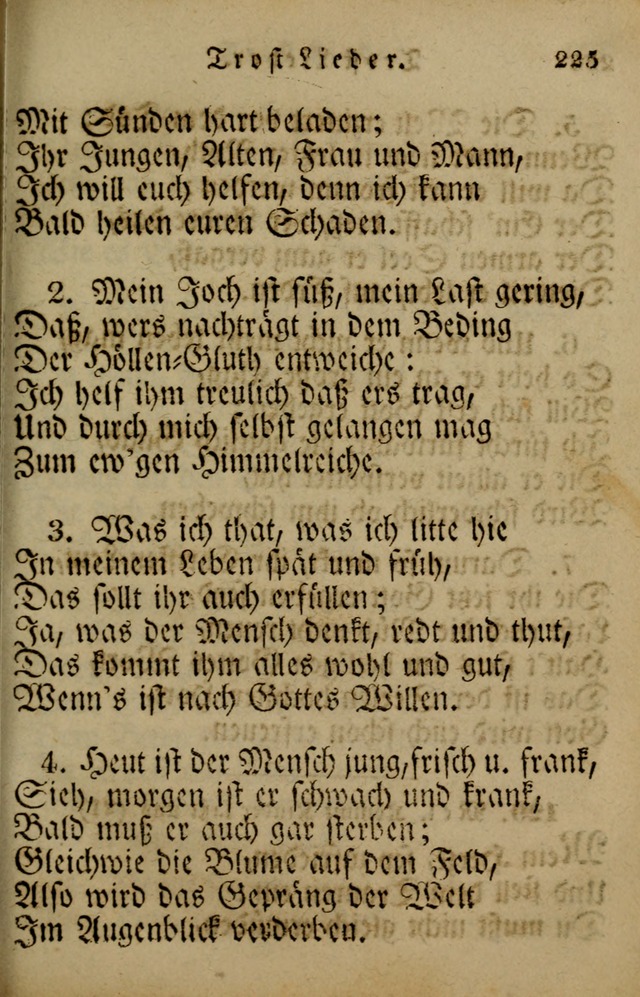 Trost Lieder. 225
Mit Sünden hart beladen;
Ihr Jungen, Alten, Frau und Mann,
Ich will euch helfen, denn ich kann
Bald heilen euren Schaden.
2. Mein Joch ist süß, mein Last gering,
Daß, wers nachträgt in dem Beding
Der Höllen-Gluth entweiche:
Ich helf ihm treulich daß ers trag,
Und durch mich selbst gelangen mag
Zum ew'gen Himmelreiche.
3. Was ich that, was ich litte hie
In meinem Leben spät und früh,
Das sollt ihr auch erfüllen;
Ja, was der Mensch denkt, redt und thut,
Das kommt ihm alles wohl und gut,
Wenn's ist nach Gottes Willen.
4. Heut ist der Mensch jung, frisch u. frank,
Sieh, morgen ist er schwach und krank,
Bald muß er auch gar sterben;
Gleichwie die Blume auf dem Feld,
Also wird das Gepräng der Welt
Im Augenblick verderben.